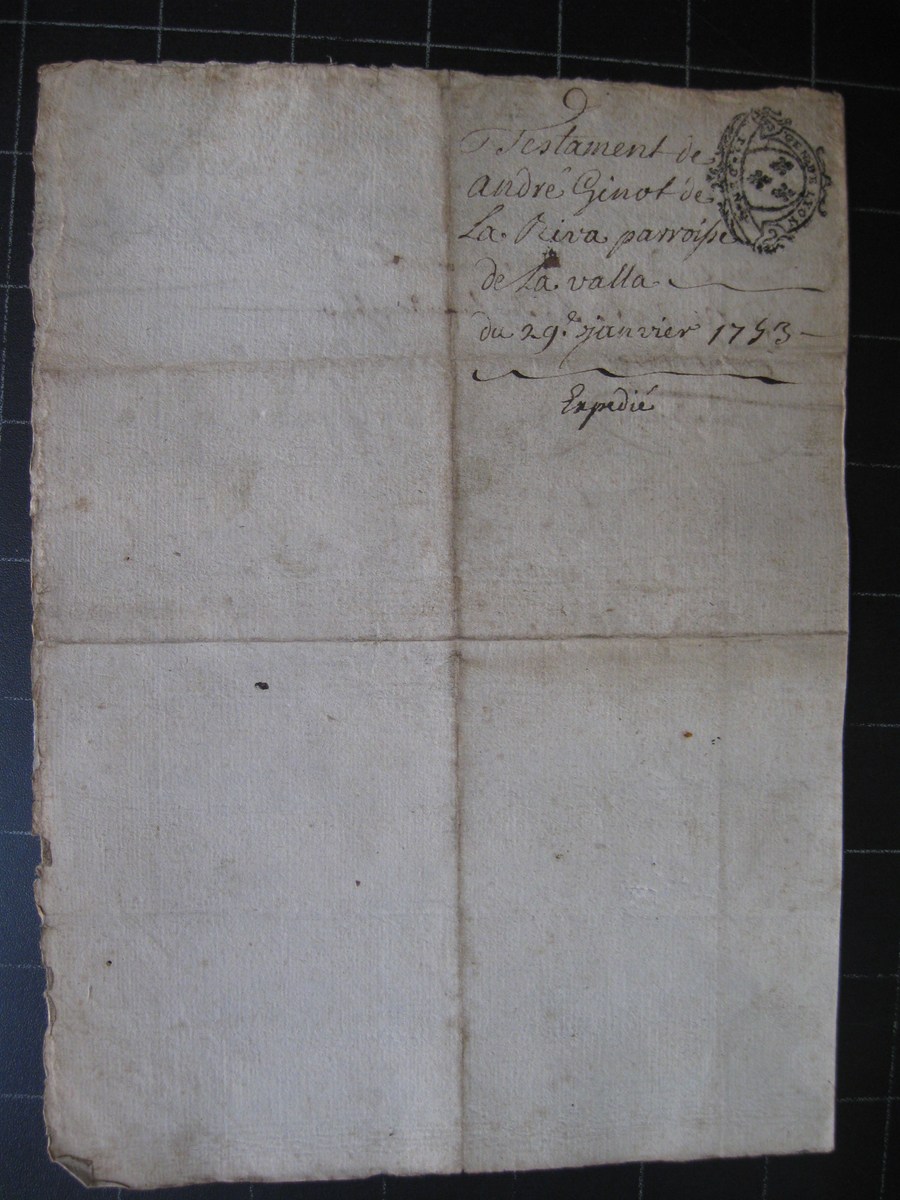 Testament de
andré Ginot de
La Riva parroisse
de La valla
du 29.e janvier 1753
Expedié